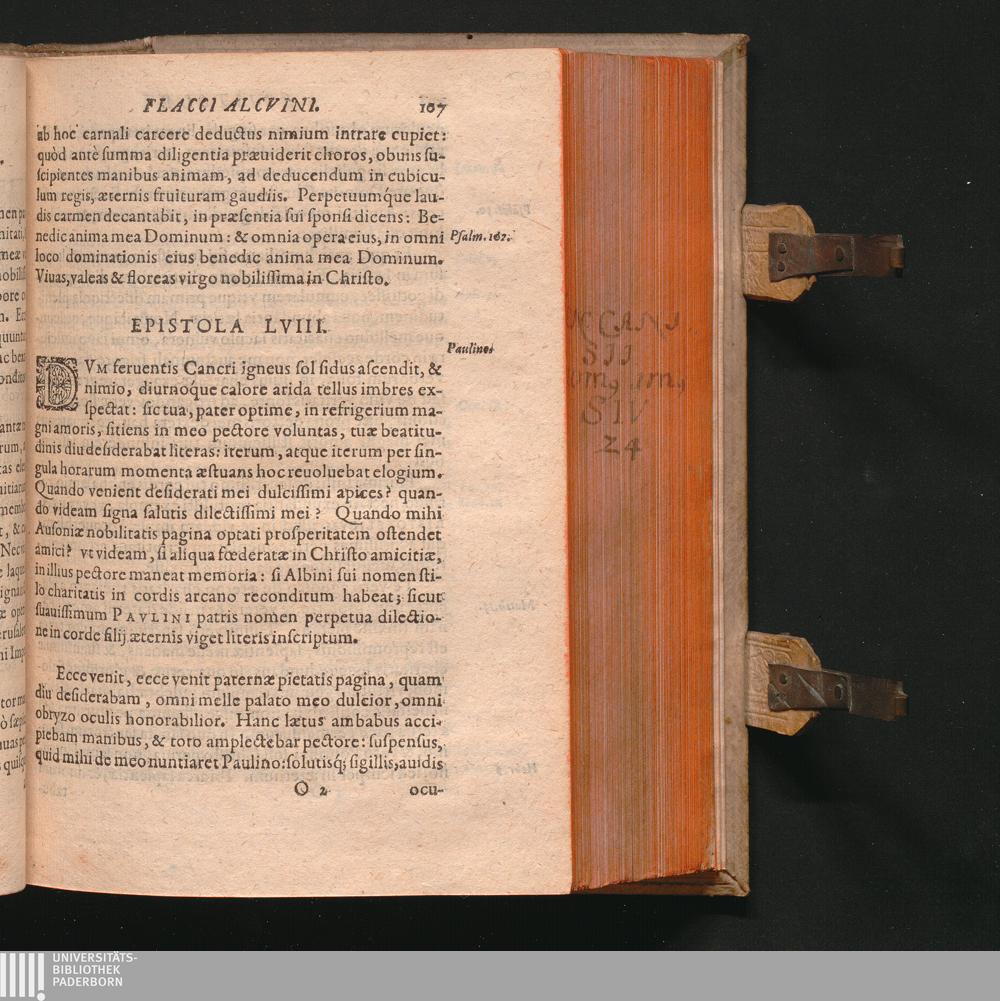 FLACCI ALCVINI. 107
ab hoc carnali carcere deductus nimium intrare cupiet:
quòd antè summa diligentia præuiderit choros, obuiis su-
scipientes manibus animam, ad deducendum in cubicu-
lum regis, æternis fruituram gaudiis. Perpetuumq́ue lau-
dis carmen decantabit, in præsentia sui sponsi dicens: Be-
nedic anima mea Dominum: & omnia opera eius, in omni
Psalm. 102.
loco dominationis eius benedic anima mea Dominum.
Viuas, valeas & floreas virgo nobilissima in Christo.
EPISTOLA LVIII.
Paulino
DVM feruentis Cancri igneus sol sidus ascendit, &
nimio, diurnóque calore arida tellus imbres ex-
spectat: sic tua, pater optime, in refrigerium ma-
gni amoris, sitiens in meo pectore voluntas, tuæ beatitu-
dinis diu desiderabat literas: iterum, atque iterum per sin-
gula horarum momenta æstuans hoc reuoluebat elogium.
Quando venient desiderati mei dulcissimi apices? quan-
do videam signa salutis dilectissimi mei? Quando mihi
Ausoniæ nobilitatis pagina optati prosperitatem ostendet
amici? vt videam, si aliqua fœderatæ in Christo amicitiæ,
in illius pectore maneat memoria: si Albini sui nomen sti-
lo charitatis in cordis arcano reconditum habeat; sicut
suauissimum PAVLINI patris nomen perpetua dilectio-
ne in corde filij æternis viget literis inscriptum.
Ecce venit, ecce venit paternæ pietatis pagina, quam
diu desiderabam, omni melle palato meo dulcior, omni
obryzo oculis honorabilior. Hanc lætus ambabus acci-
piebam manibus, & toto amplectebar pectore: suspensus,
quid mihi de meo nuntiaret Paulino: solutisq́; sigillis, auidis
O 2 ocu-
CANI
SII
SIV
24
UNIVERSITÄTS-
BIBLIOTHEK
PADERBORN